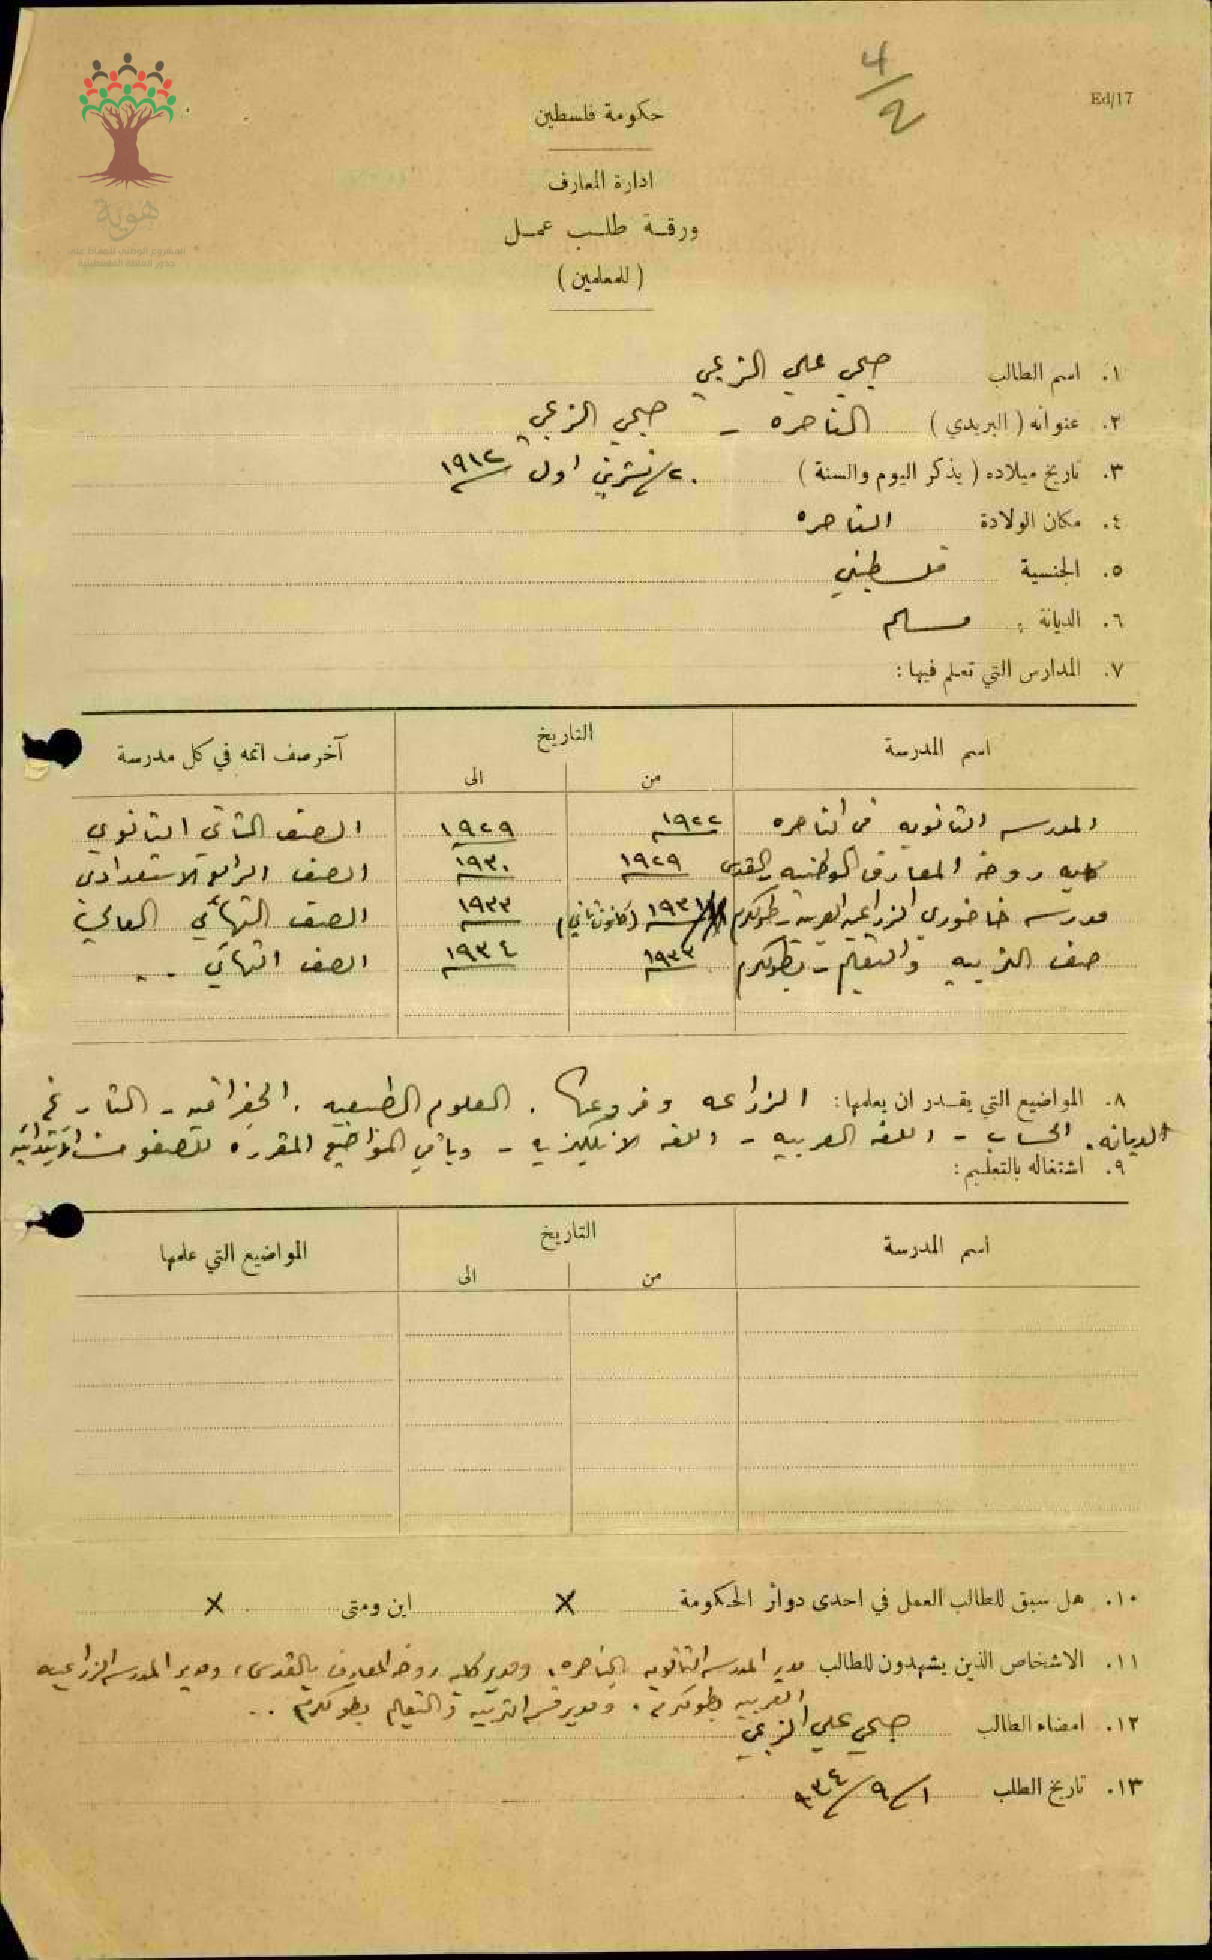 Ed/17
٤/٢
هوية
المشروع الوطني للحفاظ على
جذور العائلة الفلسطينية
حكومة فلسطين
ادارة المعارف
ورقة طلب عمل
(للمعلمين)
١. اسم الطالب صبحي علي الزعبي
٢. عنوانه (البريدي) الناصره - صبحي الزعبي
٣. تاريخ ميلاده (يذكر اليوم والسنة) ٢٠/تشرين اول ١٩١٢
٤. مكان الولادة الناصره
٥. الجنسية فلسطيني
٦. الديانة : مسلم
٧. المدارس التي تعلم فيها:
اسم المدرسة التاريخ آخر صف اتمه في كل مدرسة
من الى
المدرسه الثانويه في الناصره ١٩٢٢ ١٩٢٩ الصف الثاني الثانوي
كليه روضة المعارف الوطنيه بالقدس ١٩٢٩ ١٩٣٠ الصف الرابع الاستعدادي
مدرسه خاضوري الزراعيه العربيه - طولكرم ١٩٣١ (كانون ثاني) ١٩٣٣ الصف النهائي العالي
صف التربيه والتعليم - بطولكرم ١٩٣٣ ١٩٣٤ الصف النهائي ..
٨. المواضيع التي يقدر ان يعلمها: الزراعه وفروعها . العلوم الطبيعيه . الجغرافيه - التاريخ
الديانه . الحساب - اللغه العربيه - اللغه الانكليزيه - وباقي المواضيع المقرره للصفوف الابتدائيه
٩. اشتغاله بالتعليم:
اسم المدرسة التاريخ المواضيع التي علمها
من الى
١٠. هل سبق للطالب العمل في احدى دوائر الحكومة X اين ومتى X
١١. الاشخاص الذين يشهدون للطالب مدير المدرسه الثانويه بالناصره، ومدير كليه روضة المعارف بالقدس، ومدير المدرسه الزراعيه
العربيه بطولكرم . ومدير قسم التربيه والتعليم بطولكرم ..
١٢. امضاء الطالب صبحي علي الزعبي
١٣. تاريخ الطلب ١/٩/٩٣٤